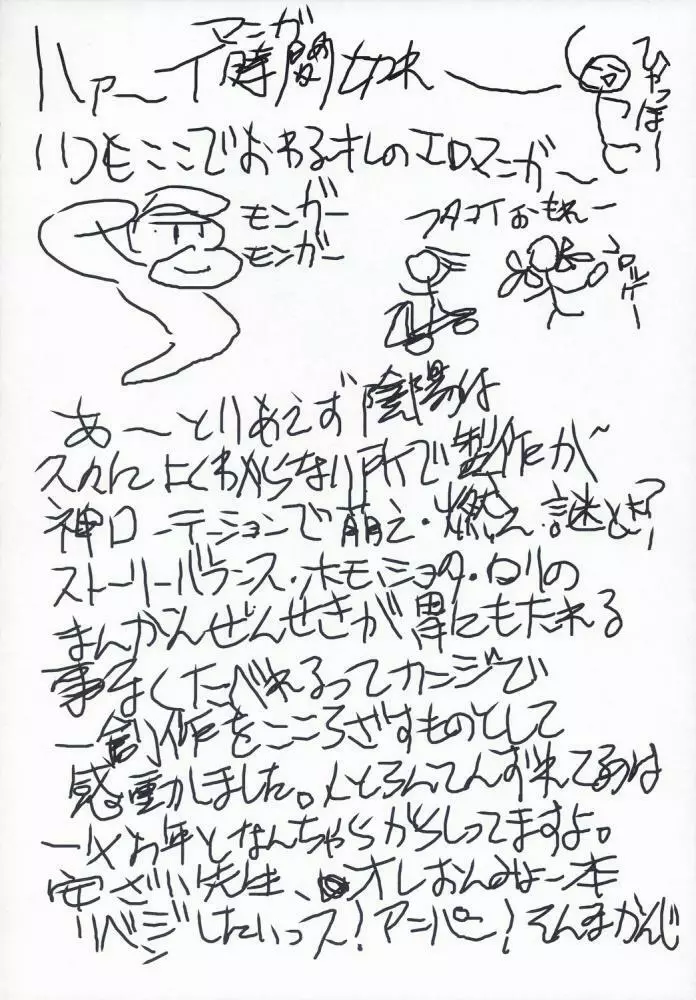 マニガ
ハァーイ 時間
ひゃっほー
いつもここでおわるオレのエロマニガー
モンガー
モンガー
フタコイおもれー
あーとりあえず陰陽は
久々によくわからない所で製作が
神ローテーションで萌え・燃え・謎とき?
ストーリーバランス・ホモ・ショタ・ロリの
まんかんぜんせきが胃にもたれる
事なくたべれるってカンジで
一創作をこころざすものとして
感動しました。メとろんてんずれてるのは
お年となんちゃらがらしってますよ。
安ざい先生、オレおんみょー本
リベンジしたいっス!アニパー!そんなかんじ